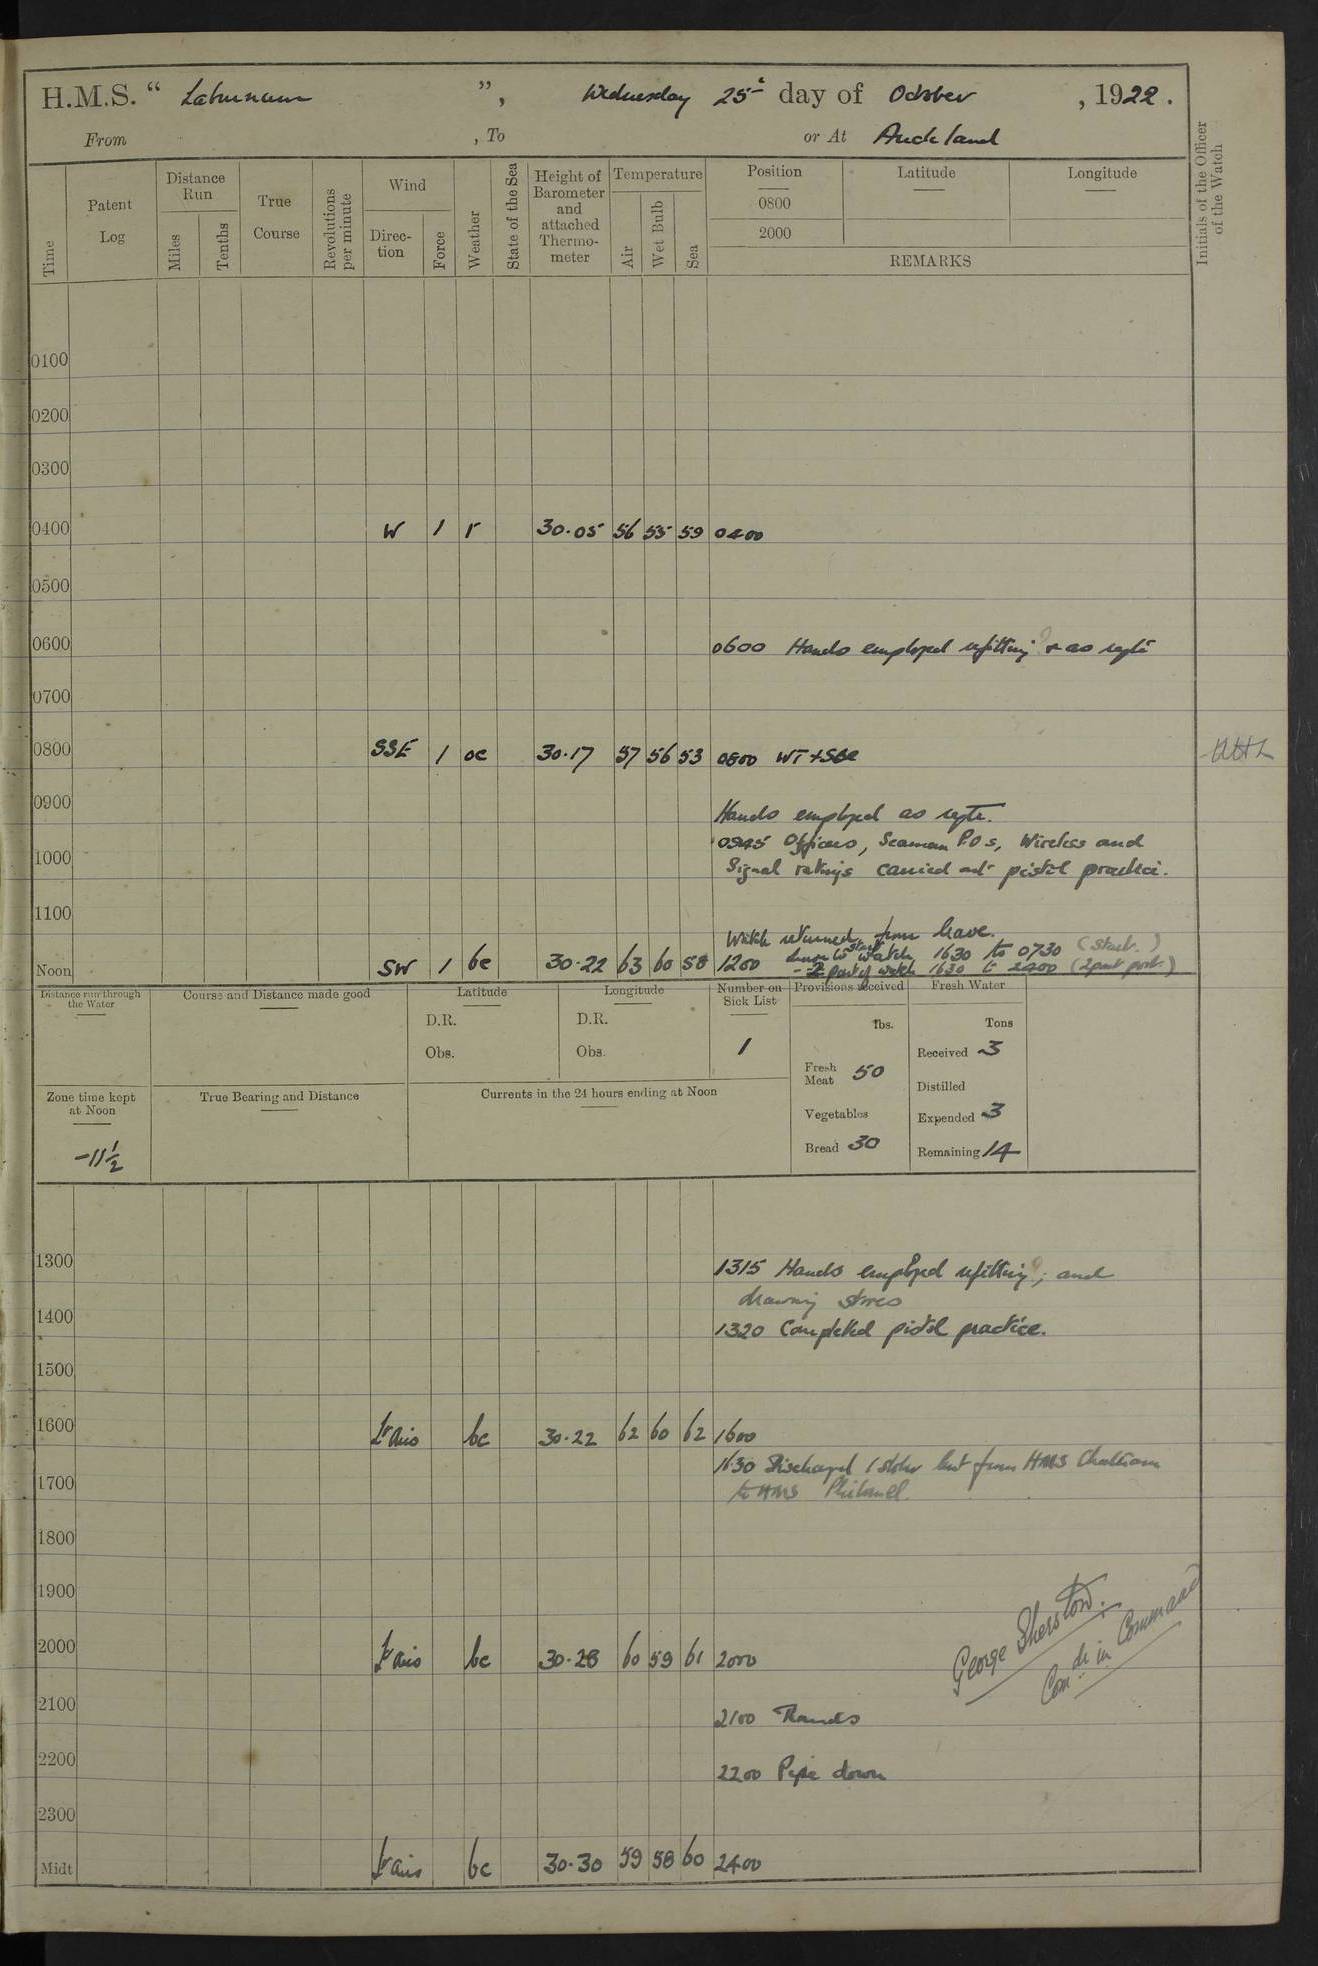 H.M.S. “ Laburnum ”, Wednesday 25th day of October, 1922.
From , To or At Auckland
Initials of the Officer of the Watch
Time
Patent Log
Distance Run
Miles
Tenths
True Course
Revolutions per minute
Wind
Direc-tion
Force
Weather
State of the Sea
Height of Barometer and attached Thermo-meter
Temperature
Air
Wet Bulb
Sea
Position
0800
2000
Latitude
Longitude
REMARKS
0100
0200
0300
0400 W 1 r 30.05 56 55 59 0400
0500
0600 0600 Hands employed refitting & as reqte
0700
0800 SSE 1 oc 30.17 57 56 53 0800 WT + SBE
0900 Hands employed as reqte.
0945 Officers, Seaman P.Os, Wireless and
1000 Signal ratings carried out pistol practice.
1100
Watch returned from leave.
Noon SW 1 bc 30.22 63 60 58 1200 Leave to Starb watch 1630 to 0730 (Starb.)
- 2 part of watch 1630 to 2400 (2 part port.)
Distance run through the Water
Course and Distance made good
Latitude
D.R.
Obs.
Longitude
D.R.
Obs.
Number on Sick List
1
Provisions received
lbs.
Fresh Meat 50
Vegetables
Bread 30
Fresh Water
Tons
Received 3
Distilled
Expended 3
Remaining 14
Zone time kept at Noon
-11½
True Bearing and Distance
Currents in the 24 hours ending at Noon
1300 1315 Hands employed refitting; and
drawing stores
1400 1320 Completed pistol practice.
1500
1600 Lt airs bc 30.22 62 60 62 1600
1630 Discharged 1 stoker lent from HMS Chatham
1700 to HMS Philomel.
1800
1900
2000 Lt airs bc 30.28 60 59 61 2000
George Sherston.
Comdr in Command
2100 2100 Rounds
2200 2200 Pipe down
2300
Midt Lt airs bc 30.30 59 58 60 2400